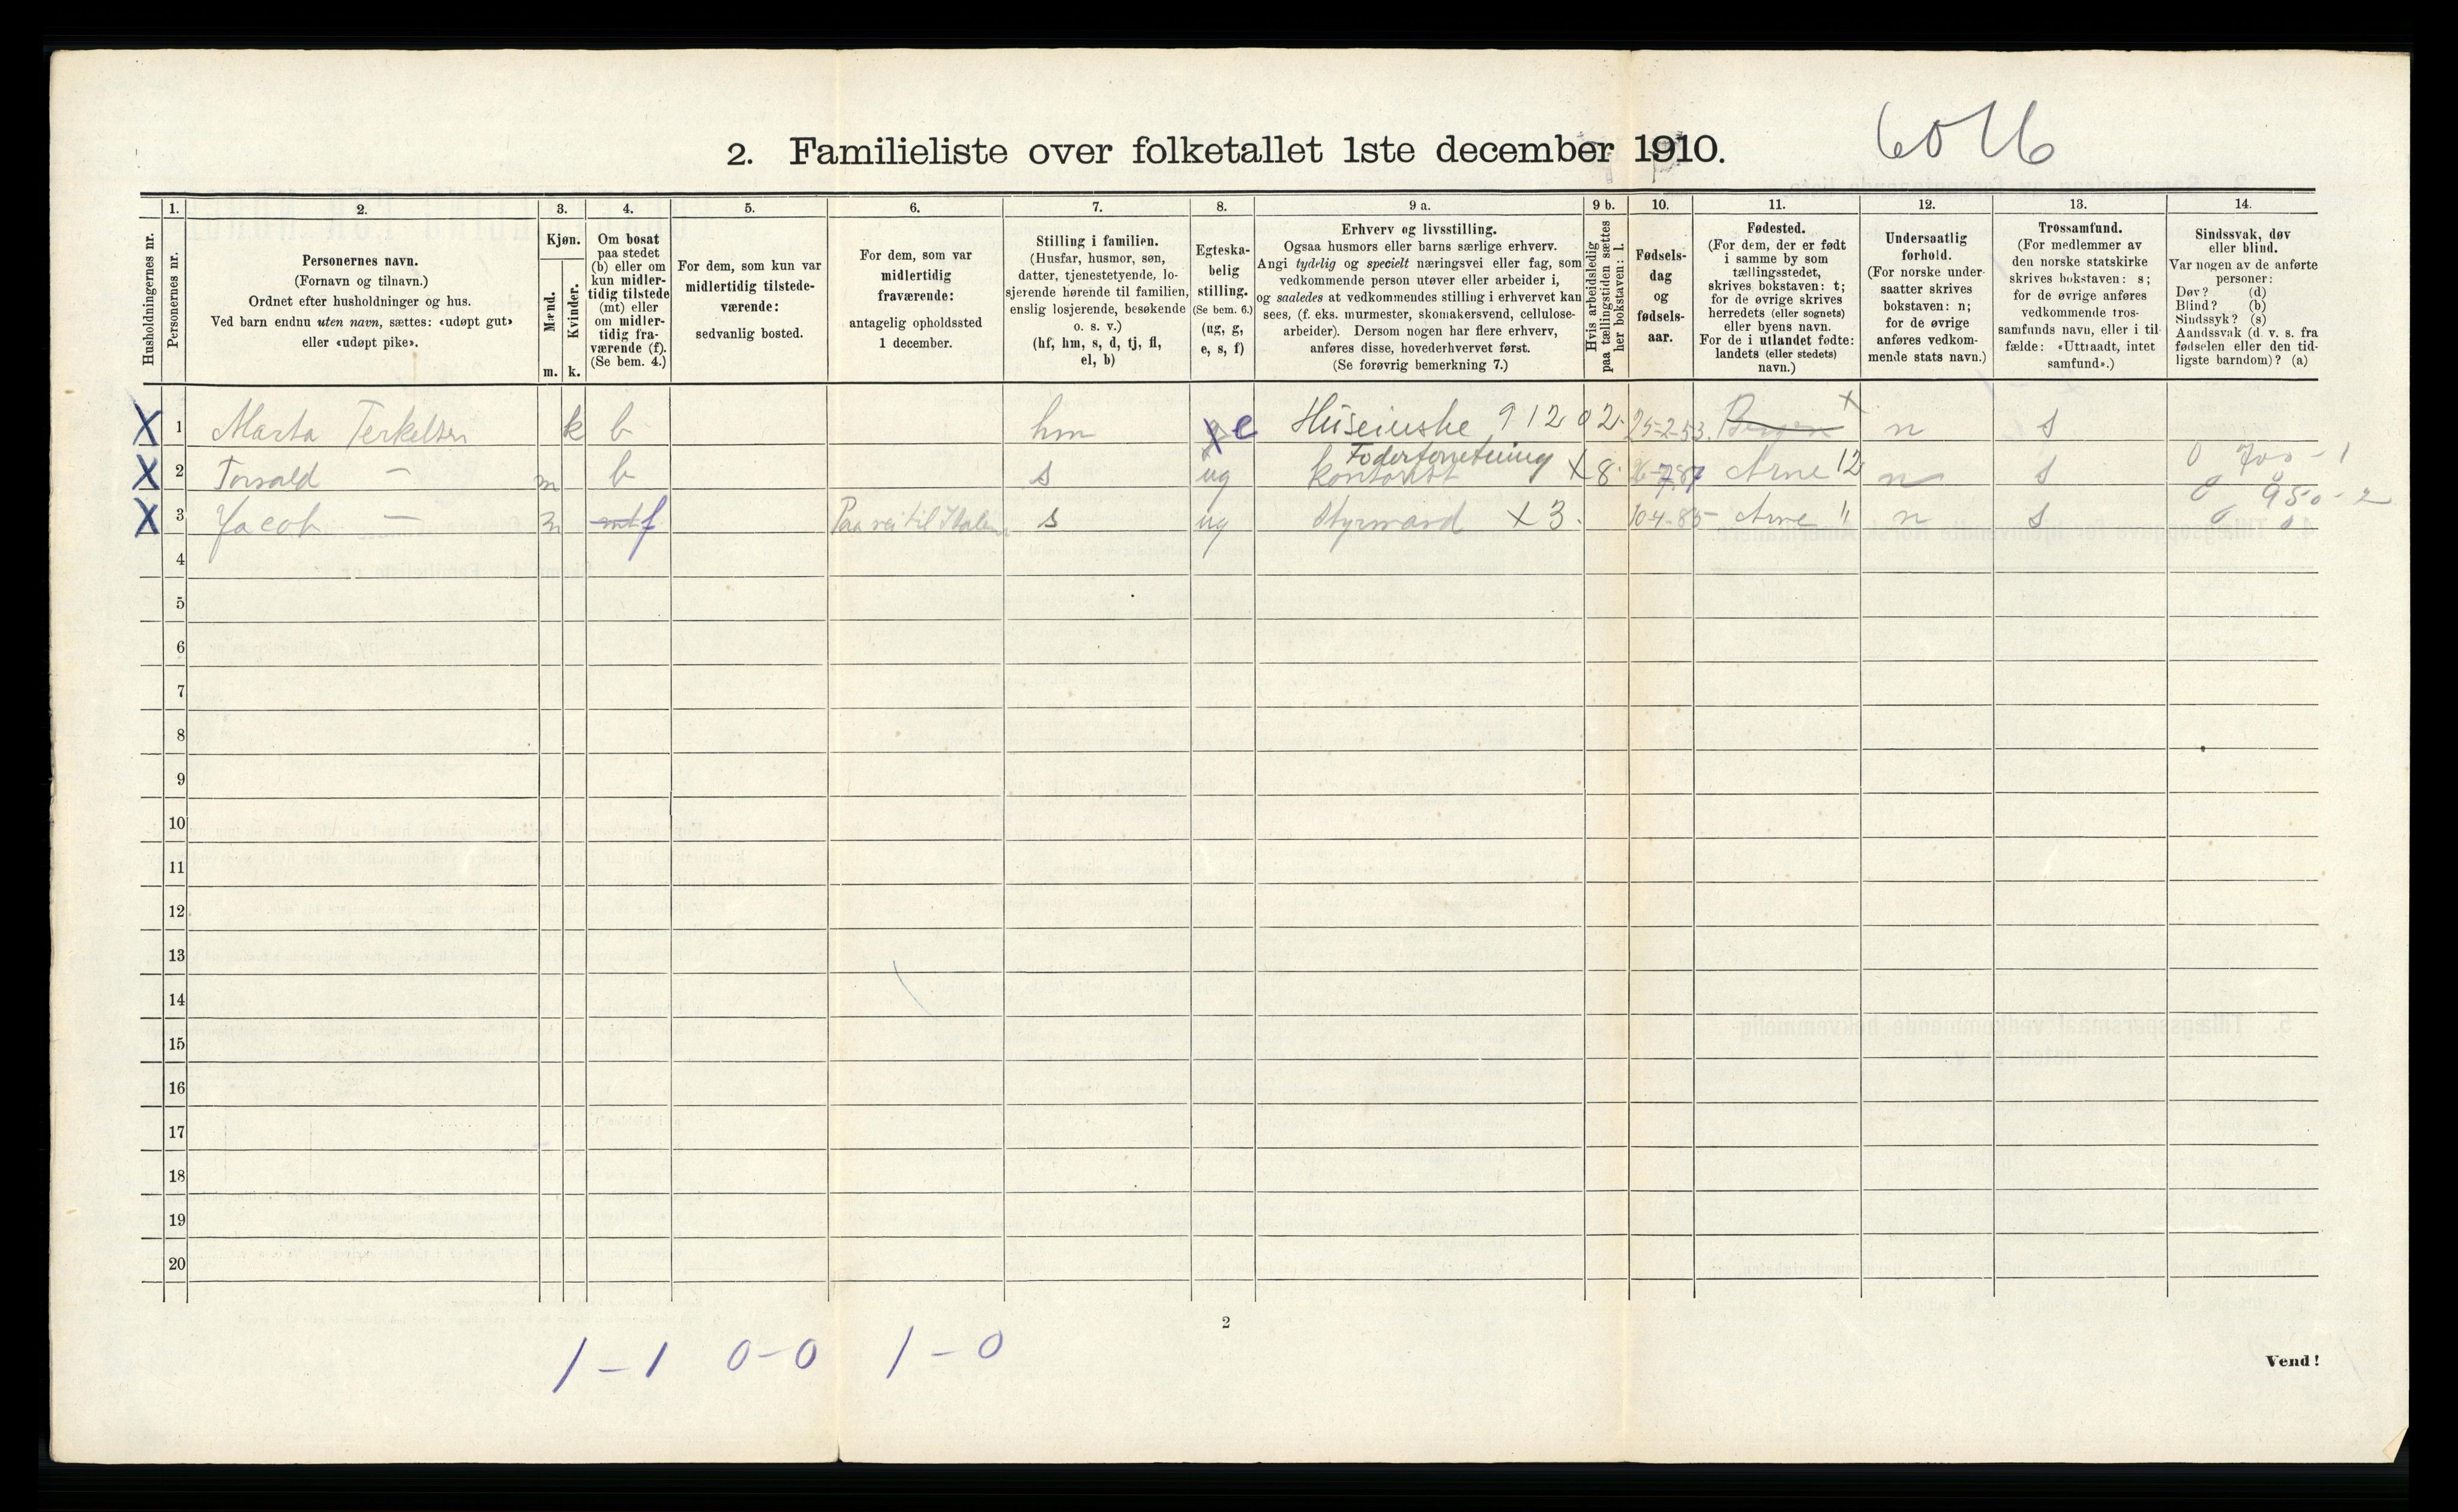 2. Familieliste over folketallet 1ste december 1910.
Husholdningernes nr.
1. Personernes nr.
2. Personernes navn.
(Fornavn og tilnavn.)
Ordnet efter husholdninger og hus.
Ved barn endnu uten navn, sættes: «udøpt gut»
eller «udøpt pike».
3. Kjøn.
Mænd. Kvinder.
m. k.
4. Om bosat
paa stedet
(b) eller om
kun midler-
tidig tilstede
(mt) eller
om midler-
tidig fra-
værende (f).
(Se bem. 4.)
5. For dem, som kun var
midlertidig tilstede-
værende:
sedvanlig bosted.
6. For dem, som var
midlertidig
fraværende:
antagelig opholdssted
1 december.
7. Stilling i familien.
(Husfar, husmor, søn,
datter, tjenestetyende, lo-
sjerende hørende til familien,
enslig losjerende, besøkende
o. s. v.)
(hf, hm, s, d, tj, fl,
el, b)
8. Egteska-
belig
stilling.
(Se bem. 6.)
(ug, g,
e, s, f)
9 a. Erhverv og livsstilling.
Ogsaa husmors eller barns særlige erhverv.
Angi tydelig og specielt næringsvei eller fag, som
vedkommende person utøver eller arbeider i,
og saaledes at vedkommendes stilling i erhvervet kan
sees, (f. eks. murmester, skomakersvend, cellulose-
arbeider). Dersom nogen har flere erhverv,
anføres disse, hovederhvervet først.
(Se forøvrig bemerkning 7.)
9 b. Hvis arbeidsledig
paa tællingstiden sættes
her bokstaven: l.
10. Fødsels-
dag
og
fødsels-
aar.
11. Fødested.
(For dem, der er født
i samme by som
tællingsstedet,
skrives bokstaven: t;
for de øvrige skrives
herredets (eller sognets)
eller byens navn.
For de i utlandet fødte:
landets (eller stedets)
navn.)
12. Undersaatlig
forhold.
(For norske under-
saatter skrives
bokstaven: n;
for de øvrige
anføres vedkom-
mende stats navn.)
13. Trossamfund.
(For medlemmer av
den norske statskirke
skrives bokstaven: s;
for de øvrige anføres
vedkommende tros-
samfunds navn, eller i til-
fælde: «Uttraadt, intet
samfund».)
14. Sindssvak, døv
eller blind.
Var nogen av de anførte
personer:
Døv? (d)
Blind? (b)
Sindssyk? (s)
Aandssvak (d. v. s. fra
fødselen eller den tid-
ligste barndom)? (a)
X 1 Marta Terkelsen k b hm e Huseierske 9 12 02. 25-2-53. Bergen x n s
Foderforretning 0 700-1
X 2 Torvald — m b s ug kontorist X 8. 26-7-87 Arne 12 n s
0 950-2
X 3 Jacob — m mt f Paa vei til Italien s ug Styrmand X 3. 10-4-85 Arne " n s 0 0
4
5
6
7
8
9
10
11
12
13
14
15
16
17
18
19
20
2
1-1 0-0 1-0
Vend!